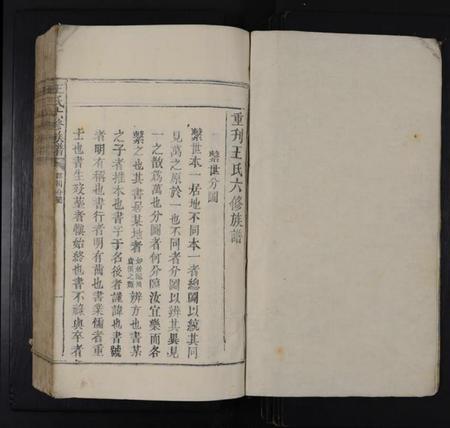 重刊王氏六修族譜
繫世分圖
繫世本一居地不同本一者總圖以統其同
見萬之原於一也不同者分圖以辨其異見
一之散爲萬也分圖者何分隨汝宜樂而各
繫之也其書是某地者
辨方也書某
之子者推本也書字于名後者謹諱也書號
者明有稱也書行者明有齒也書業儒者重
士也書生殁葬者慎始終也書不祿與卒者